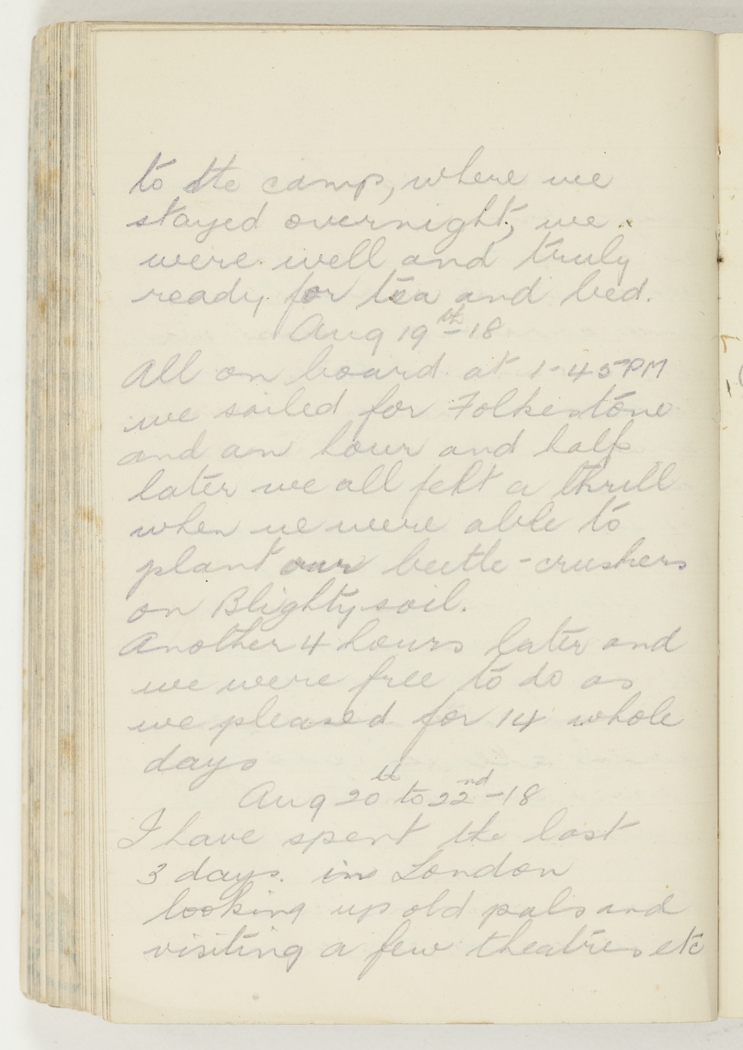 to the camp, where we
stayed overnight, we
were well and truly
ready for tea and bed.
Aug 19th-18
All on board at 1-45 PM
we sailed for Folkestone
and an hour and half
later we all felt a thrill
when we were able to
plant our beetle-crushers
on Blighty soil.
Another 4 hours later and
we were free to do as
we pleased for 14 whole
days
Aug 20th to 22nd-18
I have spent the last
3 days. in London
looking up old pals and
visiting a few theatres etc